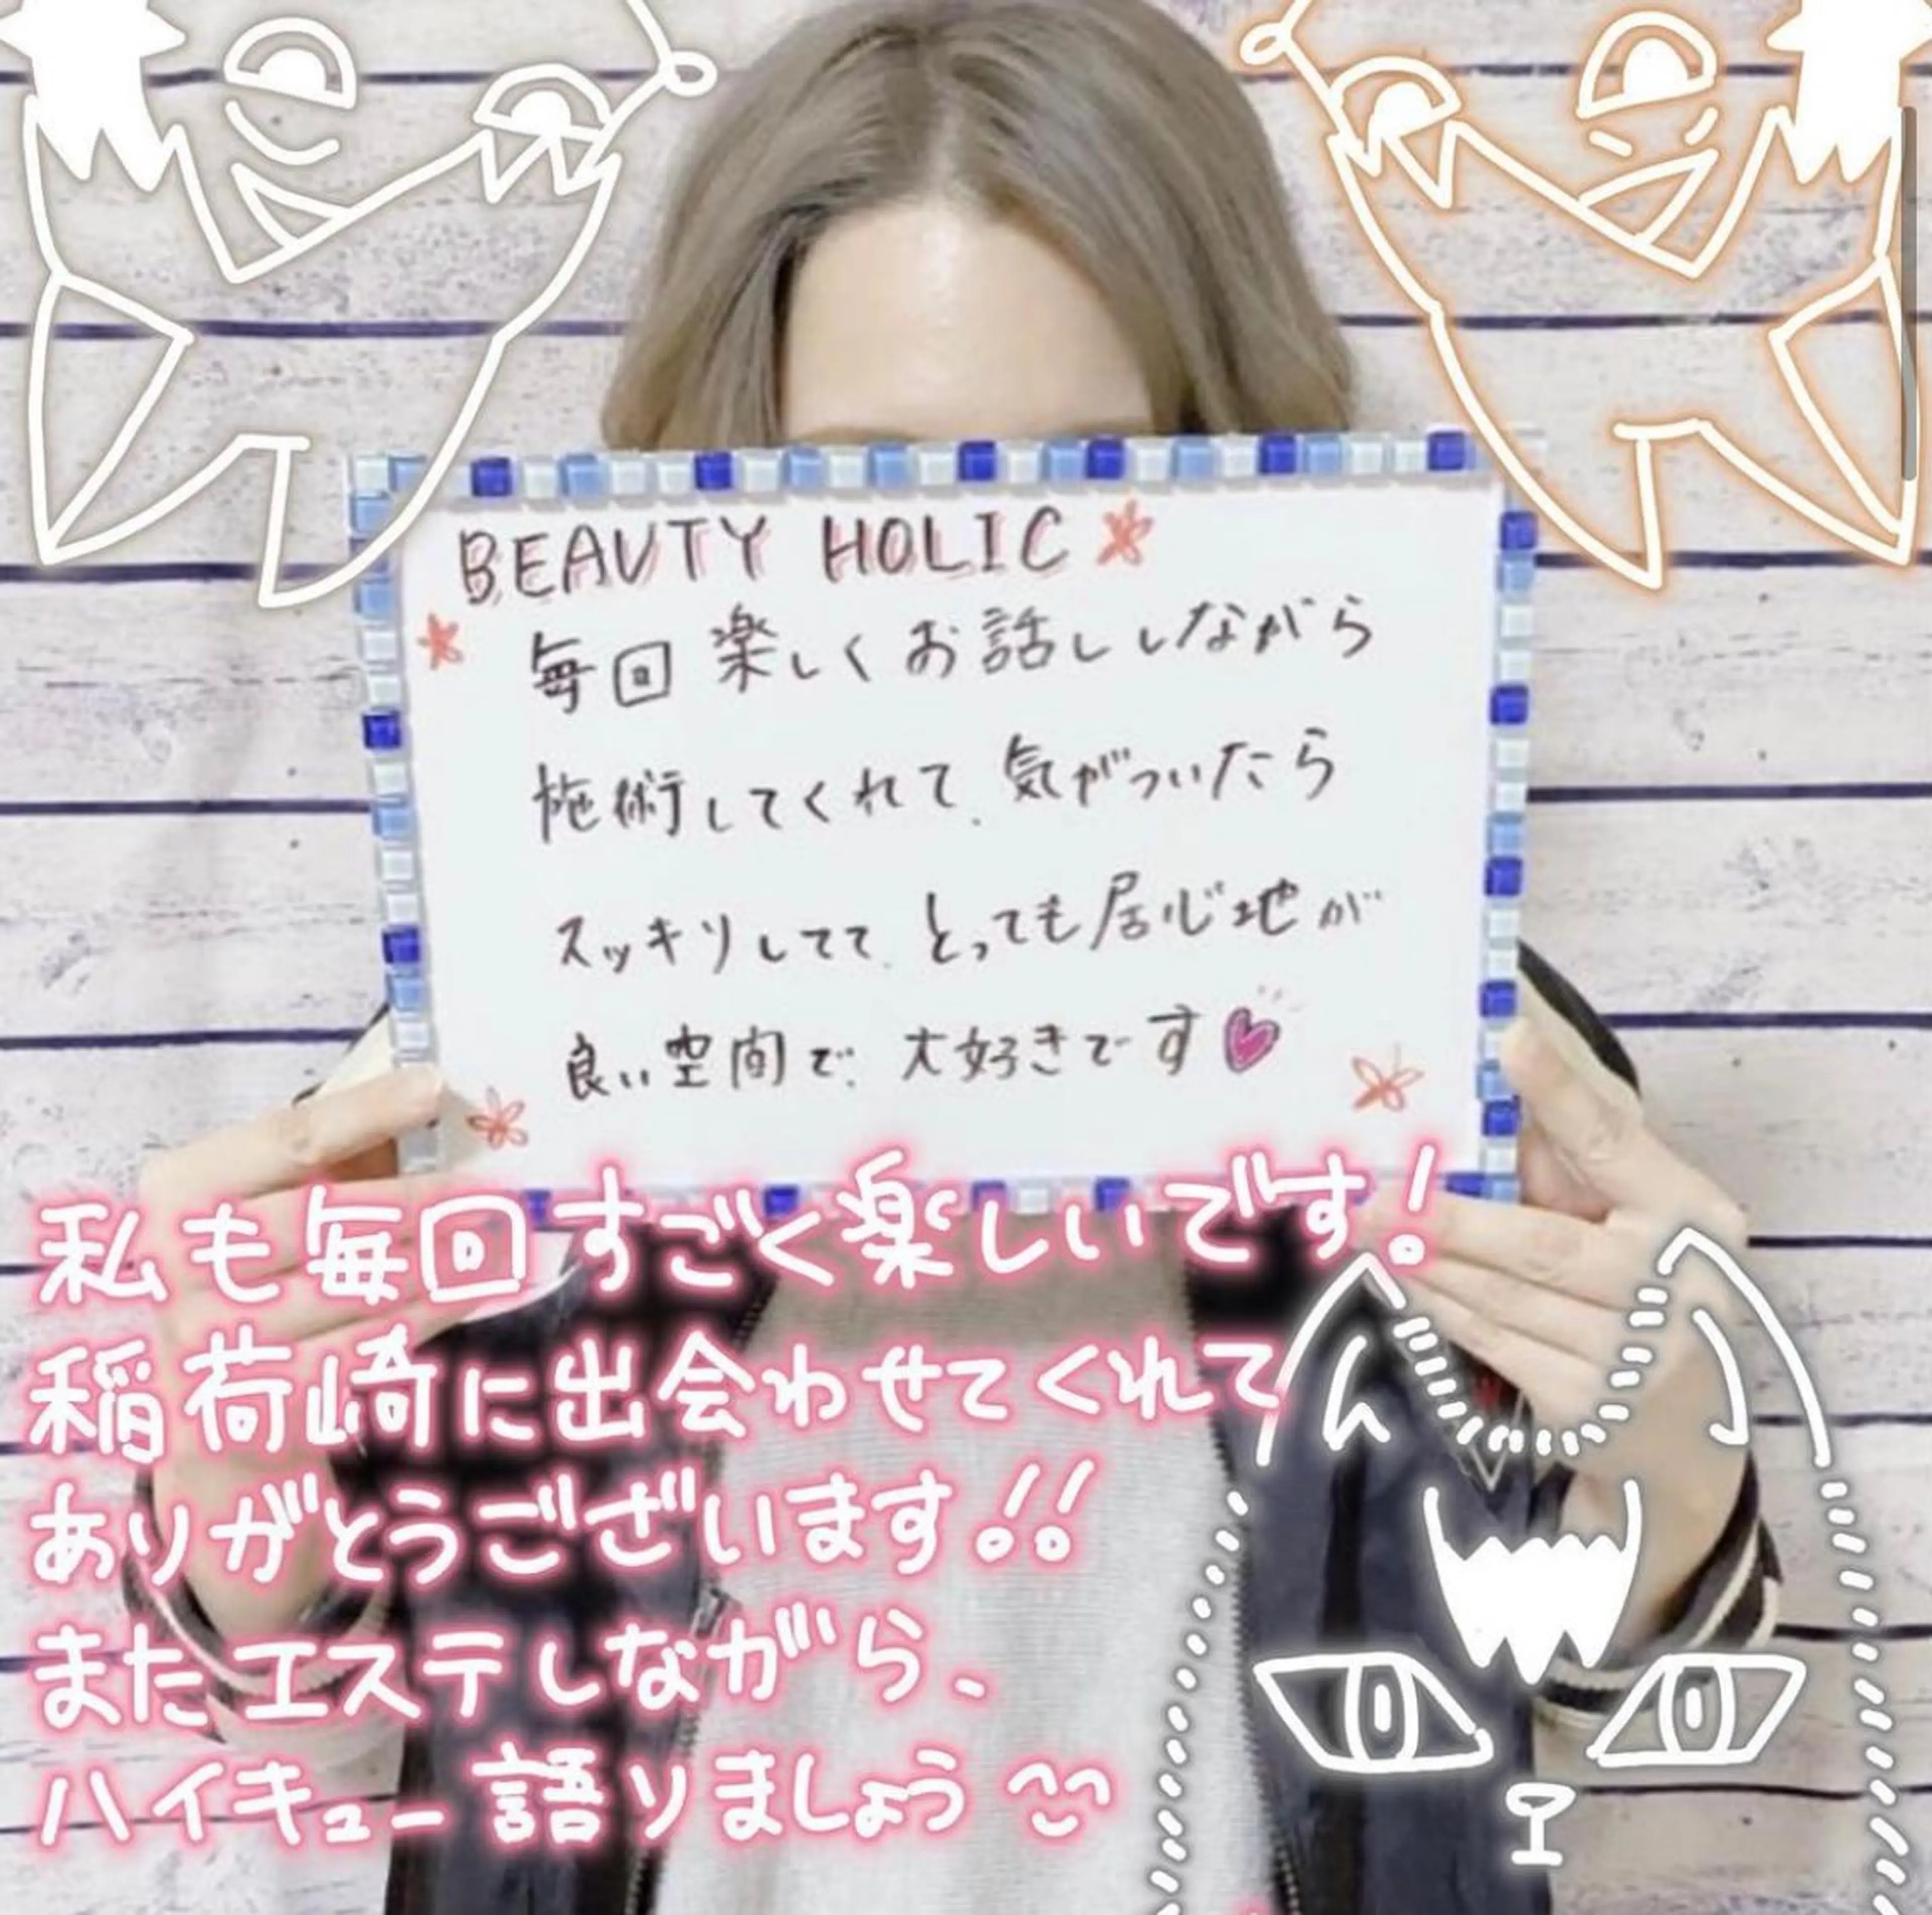 BEAUTY HOLIC
毎回 楽しくお話ししながら
施術してくれて、気がついたら
スッキリしてて、とっても居心地が
良い空間で、大好きです
私も毎回すごく楽しいです!
稲荷崎に出会わせてくれて
ありがとうございます!!
またエステしながら、
ハイキュー語りましょう